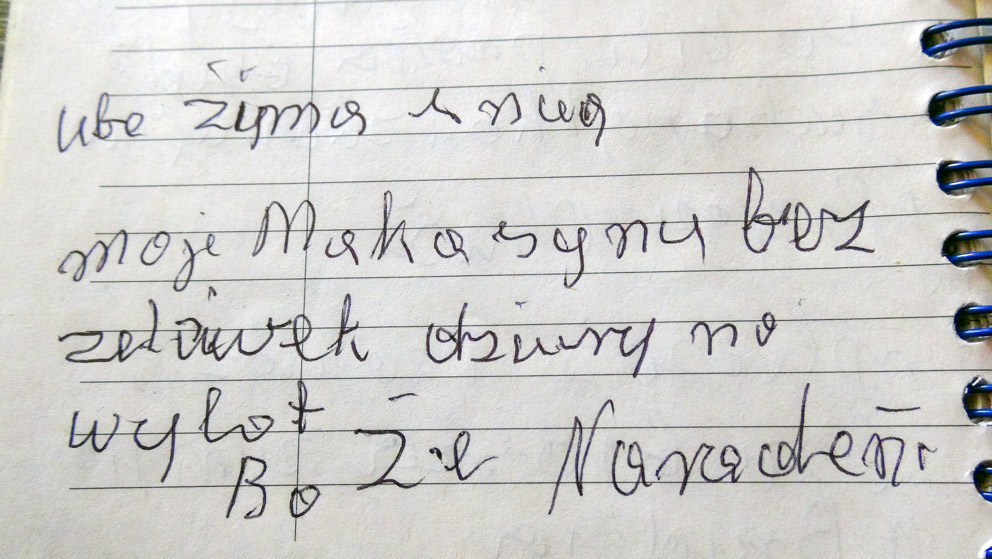 ube zima s nieg
moje Maka synu bez
zelówek dziury no
wylot
Bo Że Narodeni